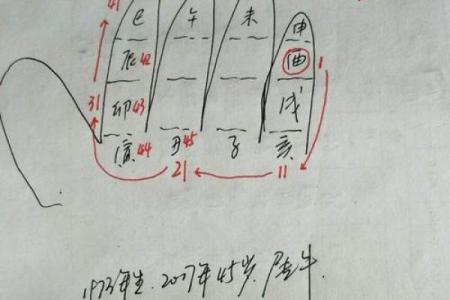 41
巳 午 未 申
辰 42 酉 1
31 卯 43 戌
寅 44 丑 45 子 亥
21 11
1973年生.2017年45岁.属牛.